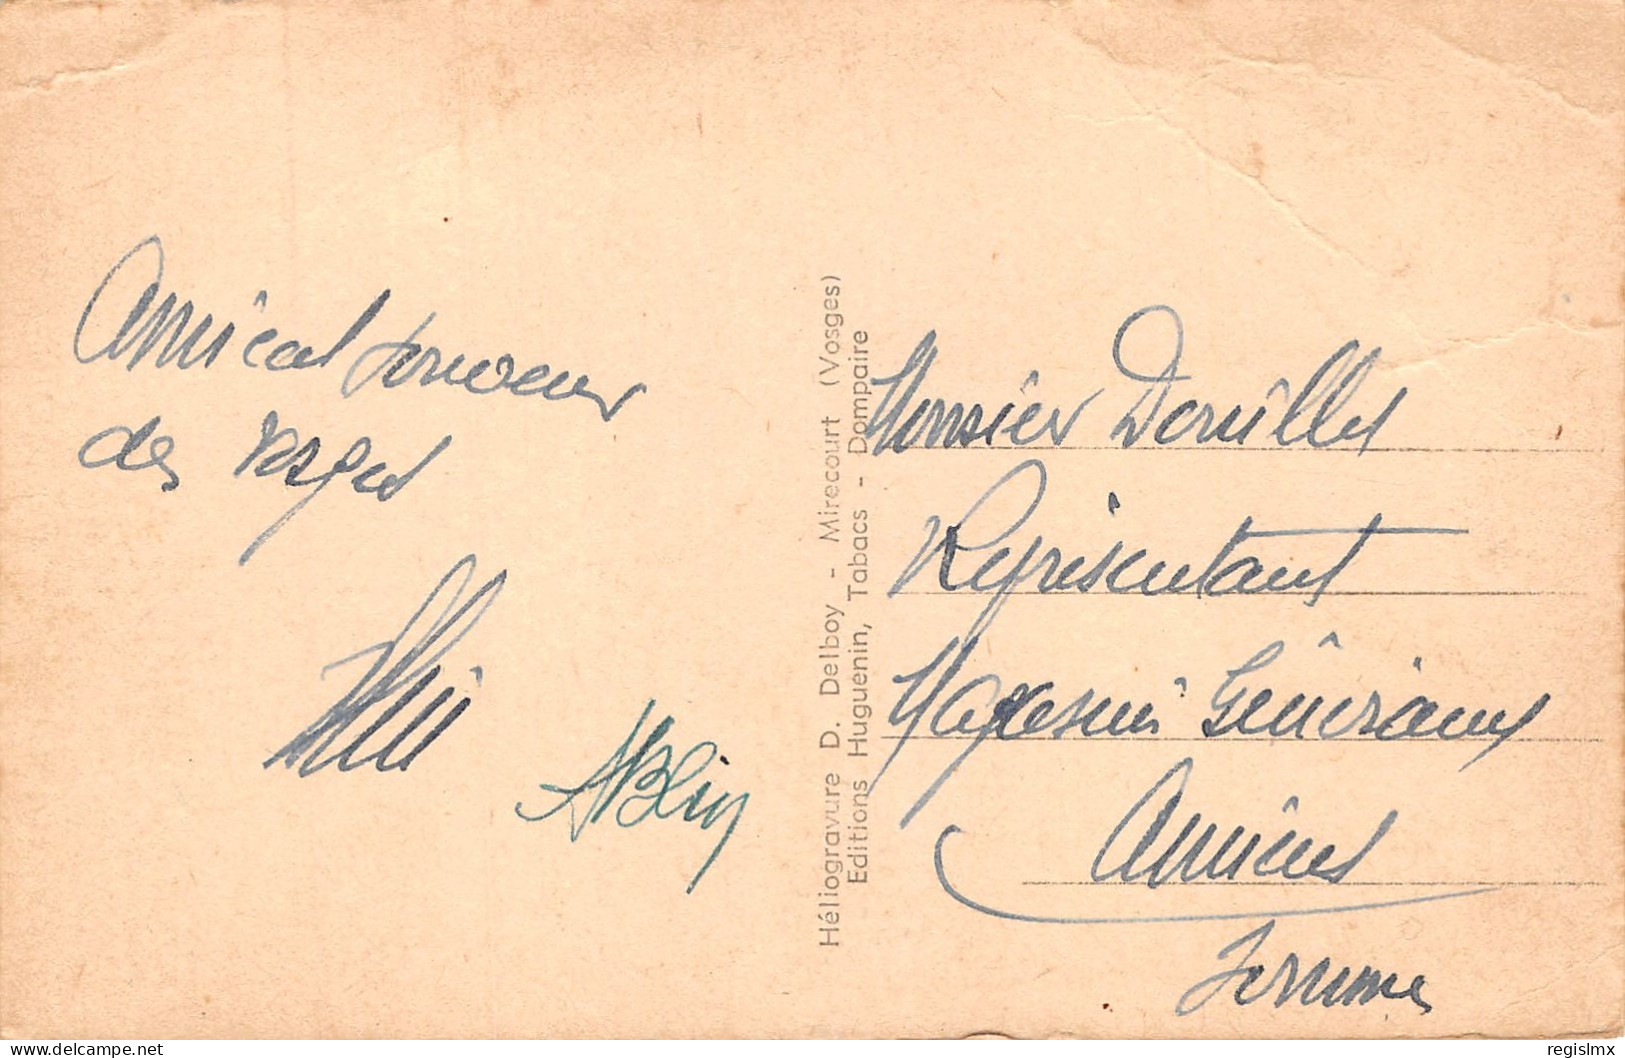 Amical souvenir
des Vosges
Héliogravure D. Delboy - Mirecourt (Vosges)
Editions Huguenin, Tabacs - Dompaire
Monsieur
Représentant
Magasins Généraux
Amiens
Somme
delcampe.net
regislmx